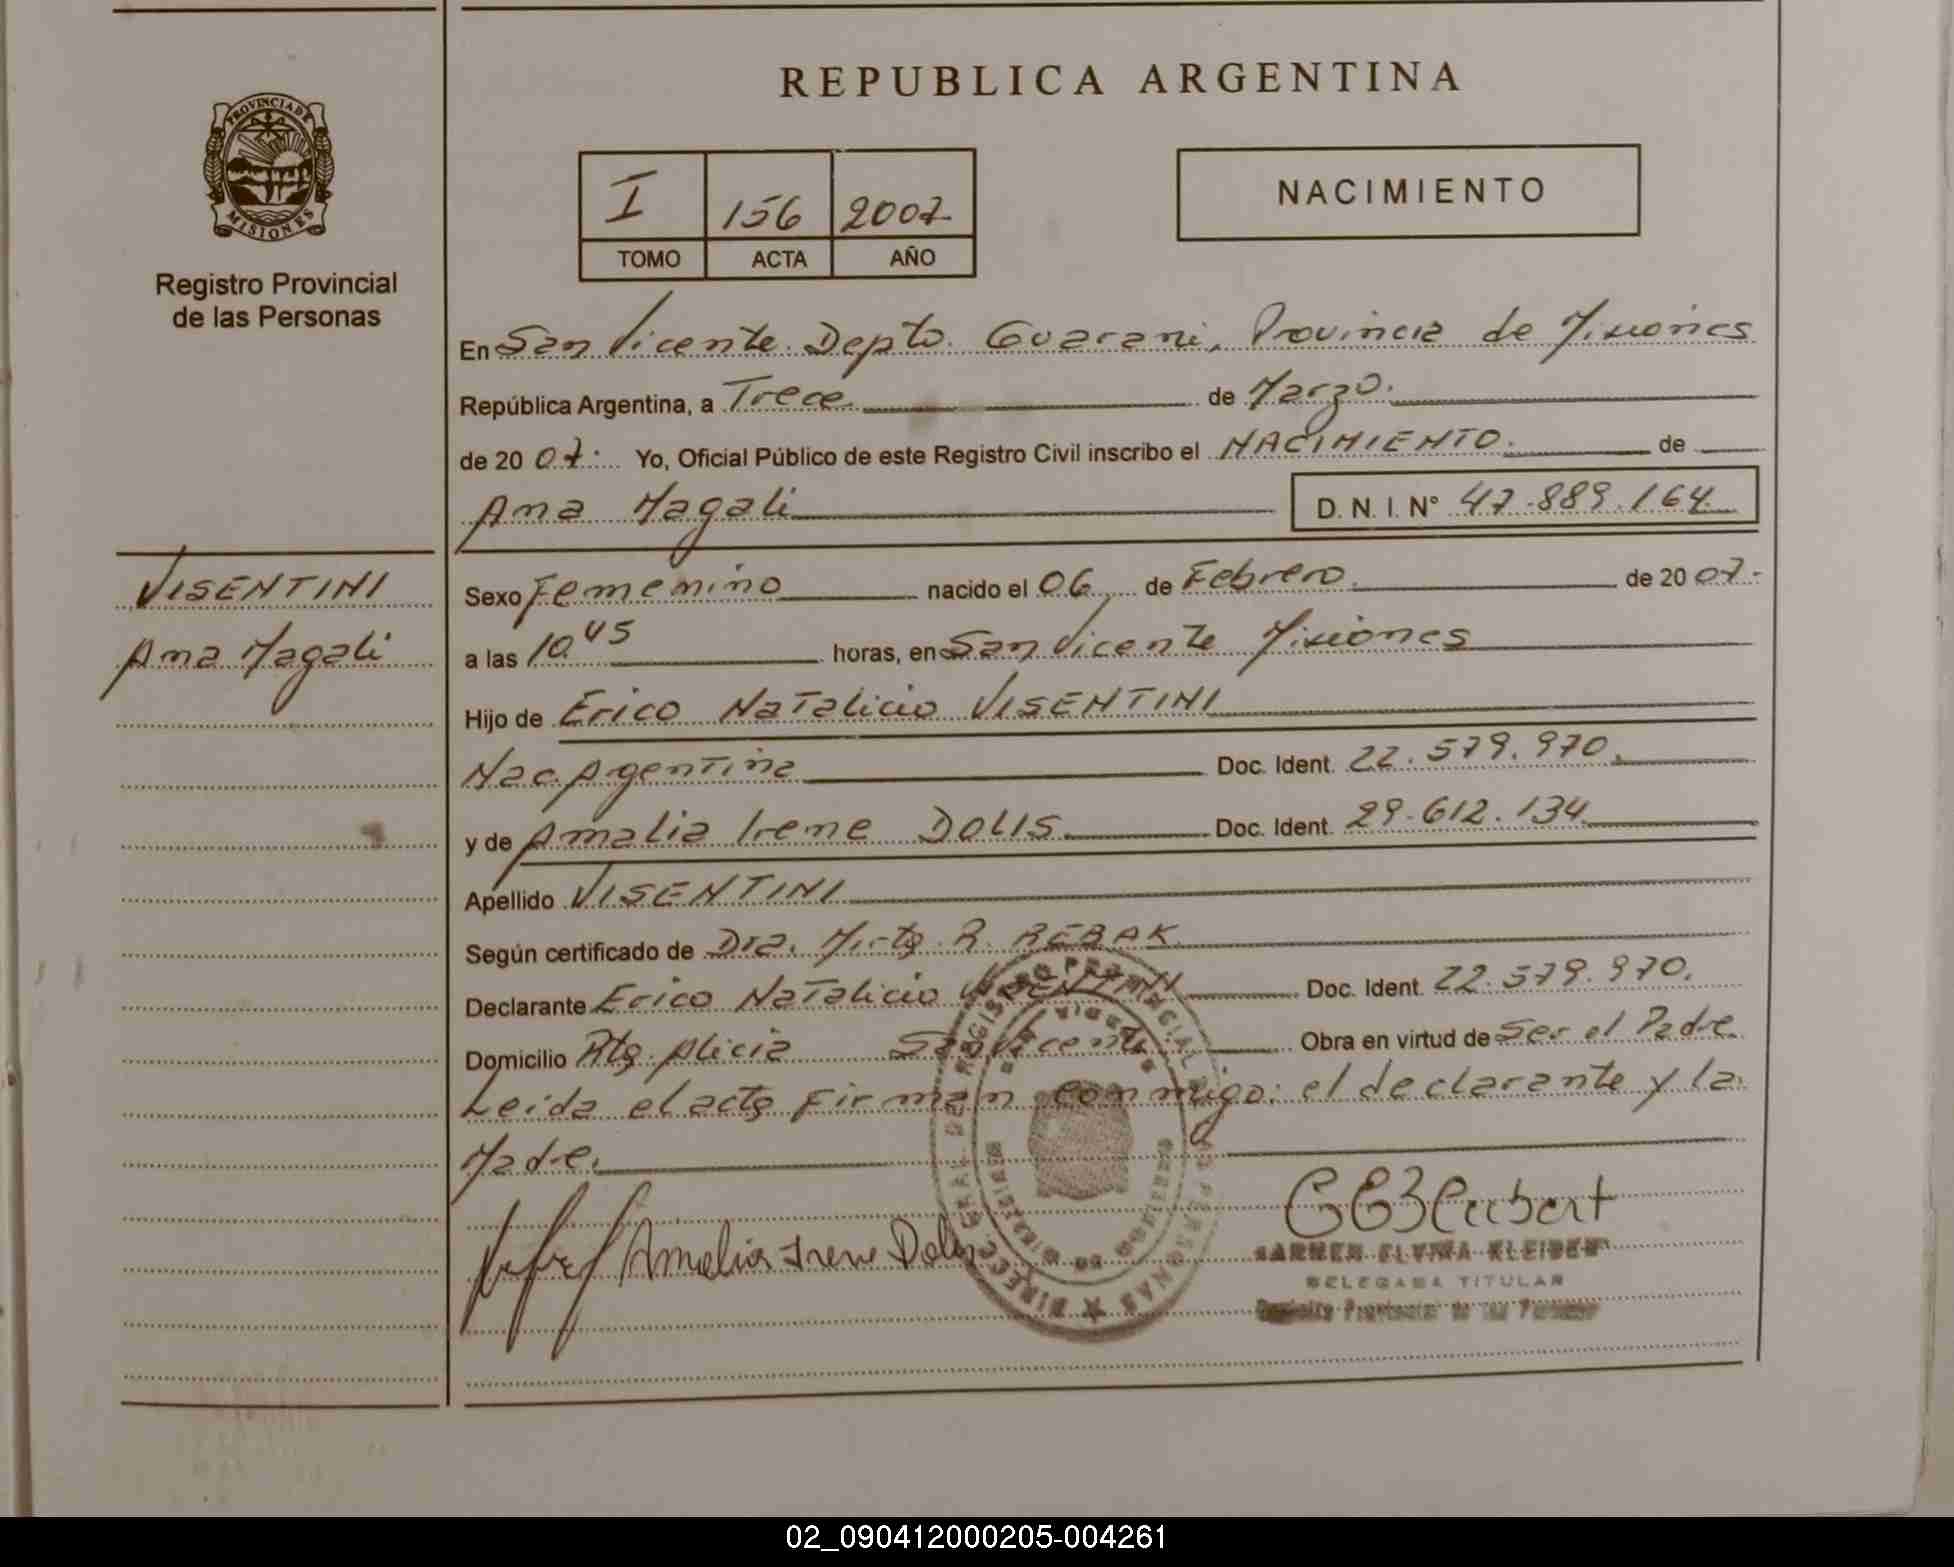 PROVINCIA DE
MISIONES
Registro Provincial
de las Personas
REPUBLICA ARGENTINA
I 156 2007
TOMO ACTA AÑO
NACIMIENTO
En San Vicente Depto. Guarani, Provincia de Misiones
República Argentina, a Trece de Marzo.
de 20 07. Yo, Oficial Público de este Registro Civil inscribo el NACIMIENTO. de
Ana Magali D. N. I. N° 47.889.164
VISENTINI
Ana Magali
Sexo Femenino nacido el 06 de Febrero. de 20 07.
a las 10.45 horas, en San Vicente Misiones
Hijo de Erico Natalicio VISENTINI
Nac. Argentina Doc. Ident. 22.579.970.
y de Amalia Irene DOLIS Doc. Ident. 29.612.134
Apellido VISENTINI
Según certificado de Dra. Mirta R. REBAK
Declarante Erico Natalicio VISENTINI Doc. Ident. 22.579.970.
Domicilio Pto Alicia San Vicente Obra en virtud de Ser el Padre
Leida el acta Firman conmigo: el declarante y la
Madre.
Amalia Irene Dolis
DELEGADA TITULAR
Registro Provincial de las Personas
02_090412000205-004261